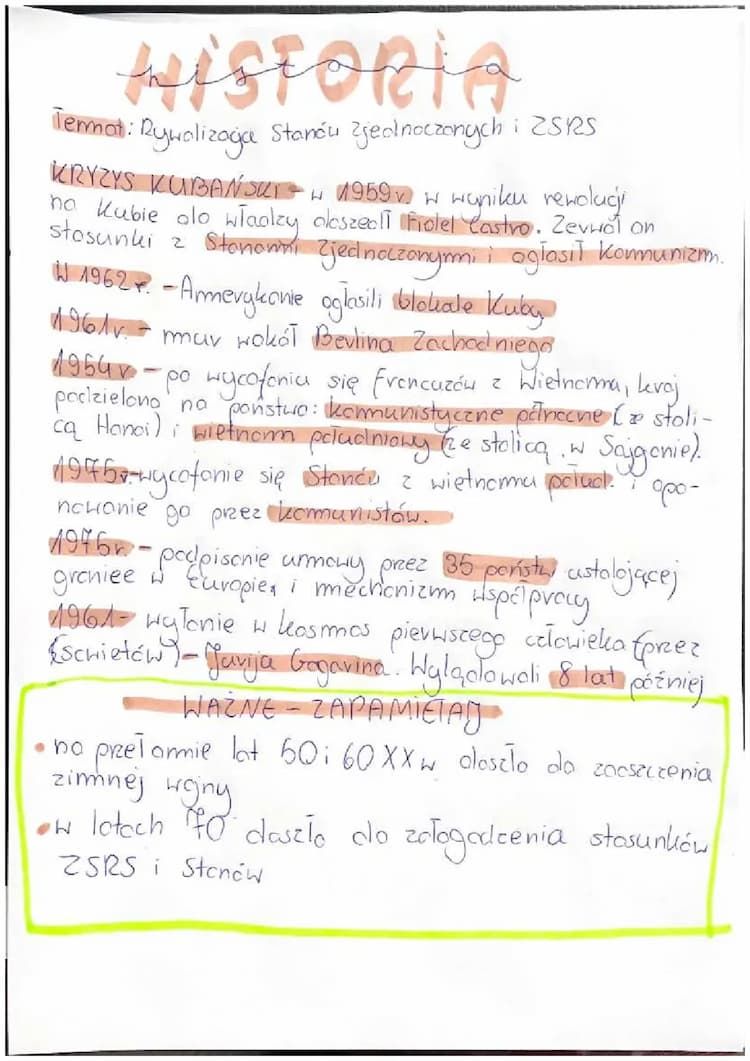 HiSTORiA
historia
Temat: Rywalizacja Stanów Zjednoczonych i ZSRS
KRYZYS KUBAŃSKI - w 1959r. w wyniku rewolucji
na Kubie do władzy doszedł Fidel Castro. Zerwał on
stosunki z Stanami Zjednoczonymi i ogłosił komunizm.
W 1962r. - Amerykanie ogłosili blokade Kuby
1961r. - mur wokół Berlina Zachodniego
1954r - po wycofaniu się Francuzów z Wietnamu, kraj
podzielono na państwo: komunistyczne północne (ze stoli-
cą Hanoi) i wietnam południowy (ze stolicą w Sajgonie).
1975r-wycofanie się Stanów z wietnamu połud. i opa-
nowanie go przez komunistów.
1975r. - podpisanie umowy przez 35 państw ustalającej
graniee w Europie, i mechanizm współpracy
1961- wysłanie w kosmos pierwszego człowieka (przez
sowietów) - Jurija Gagarina. Wylądowali 8 lat później
WAŻNE - ZAPAMIĘTAJ
• na przełomie lat 50 i 60 XX w doszło do zaostrzenia
zimnej wojny
• w latach 70 doszło do załogodzenia stosunków
ZSRS i Stanów